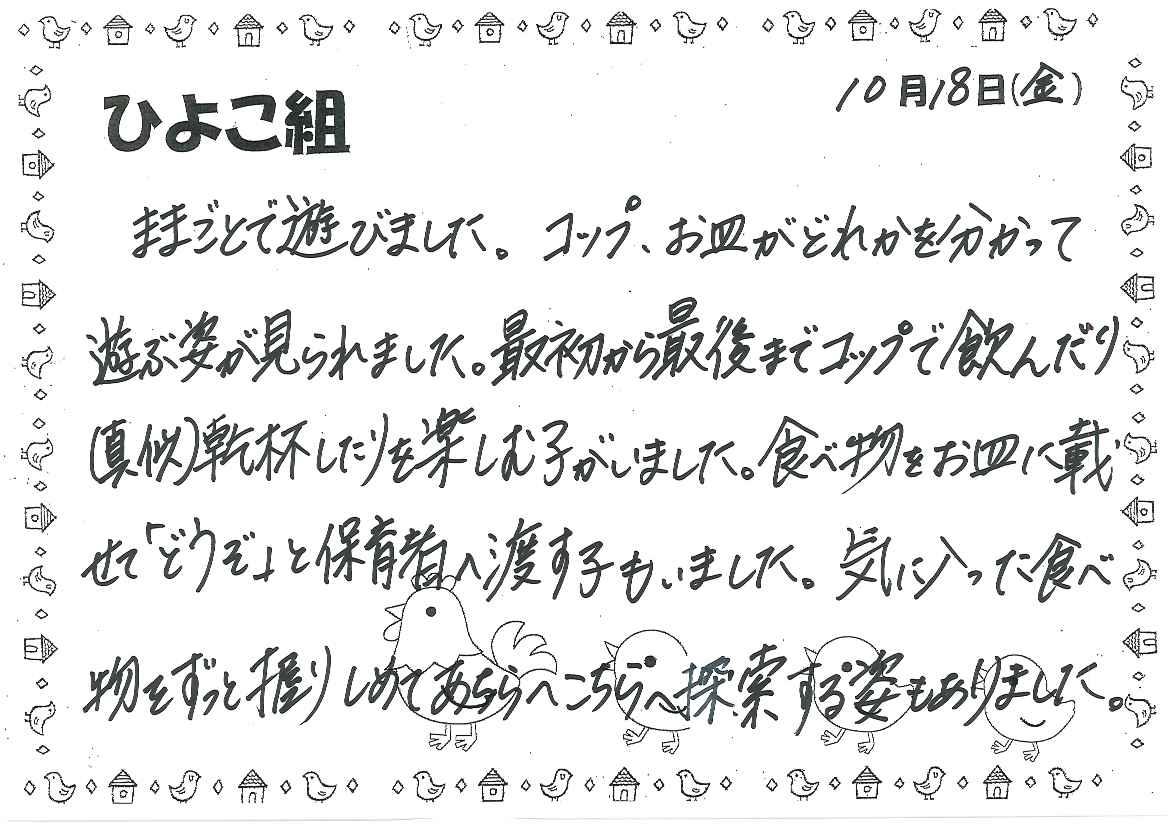 10月18日(金)
ひよこ組
ままごとで遊びました。コップ、お皿がどれかを分かって
遊ぶ姿が見られました。最初から最後までコップで飲んだり
(真似)乾杯したりを楽しむ子がいました。食べ物をお皿に載
せて「どうぞ」と保育者へ渡す子もいました。気に入った食べ
物をずっと握りしめてあちらへこちらへ探索する姿もありました。